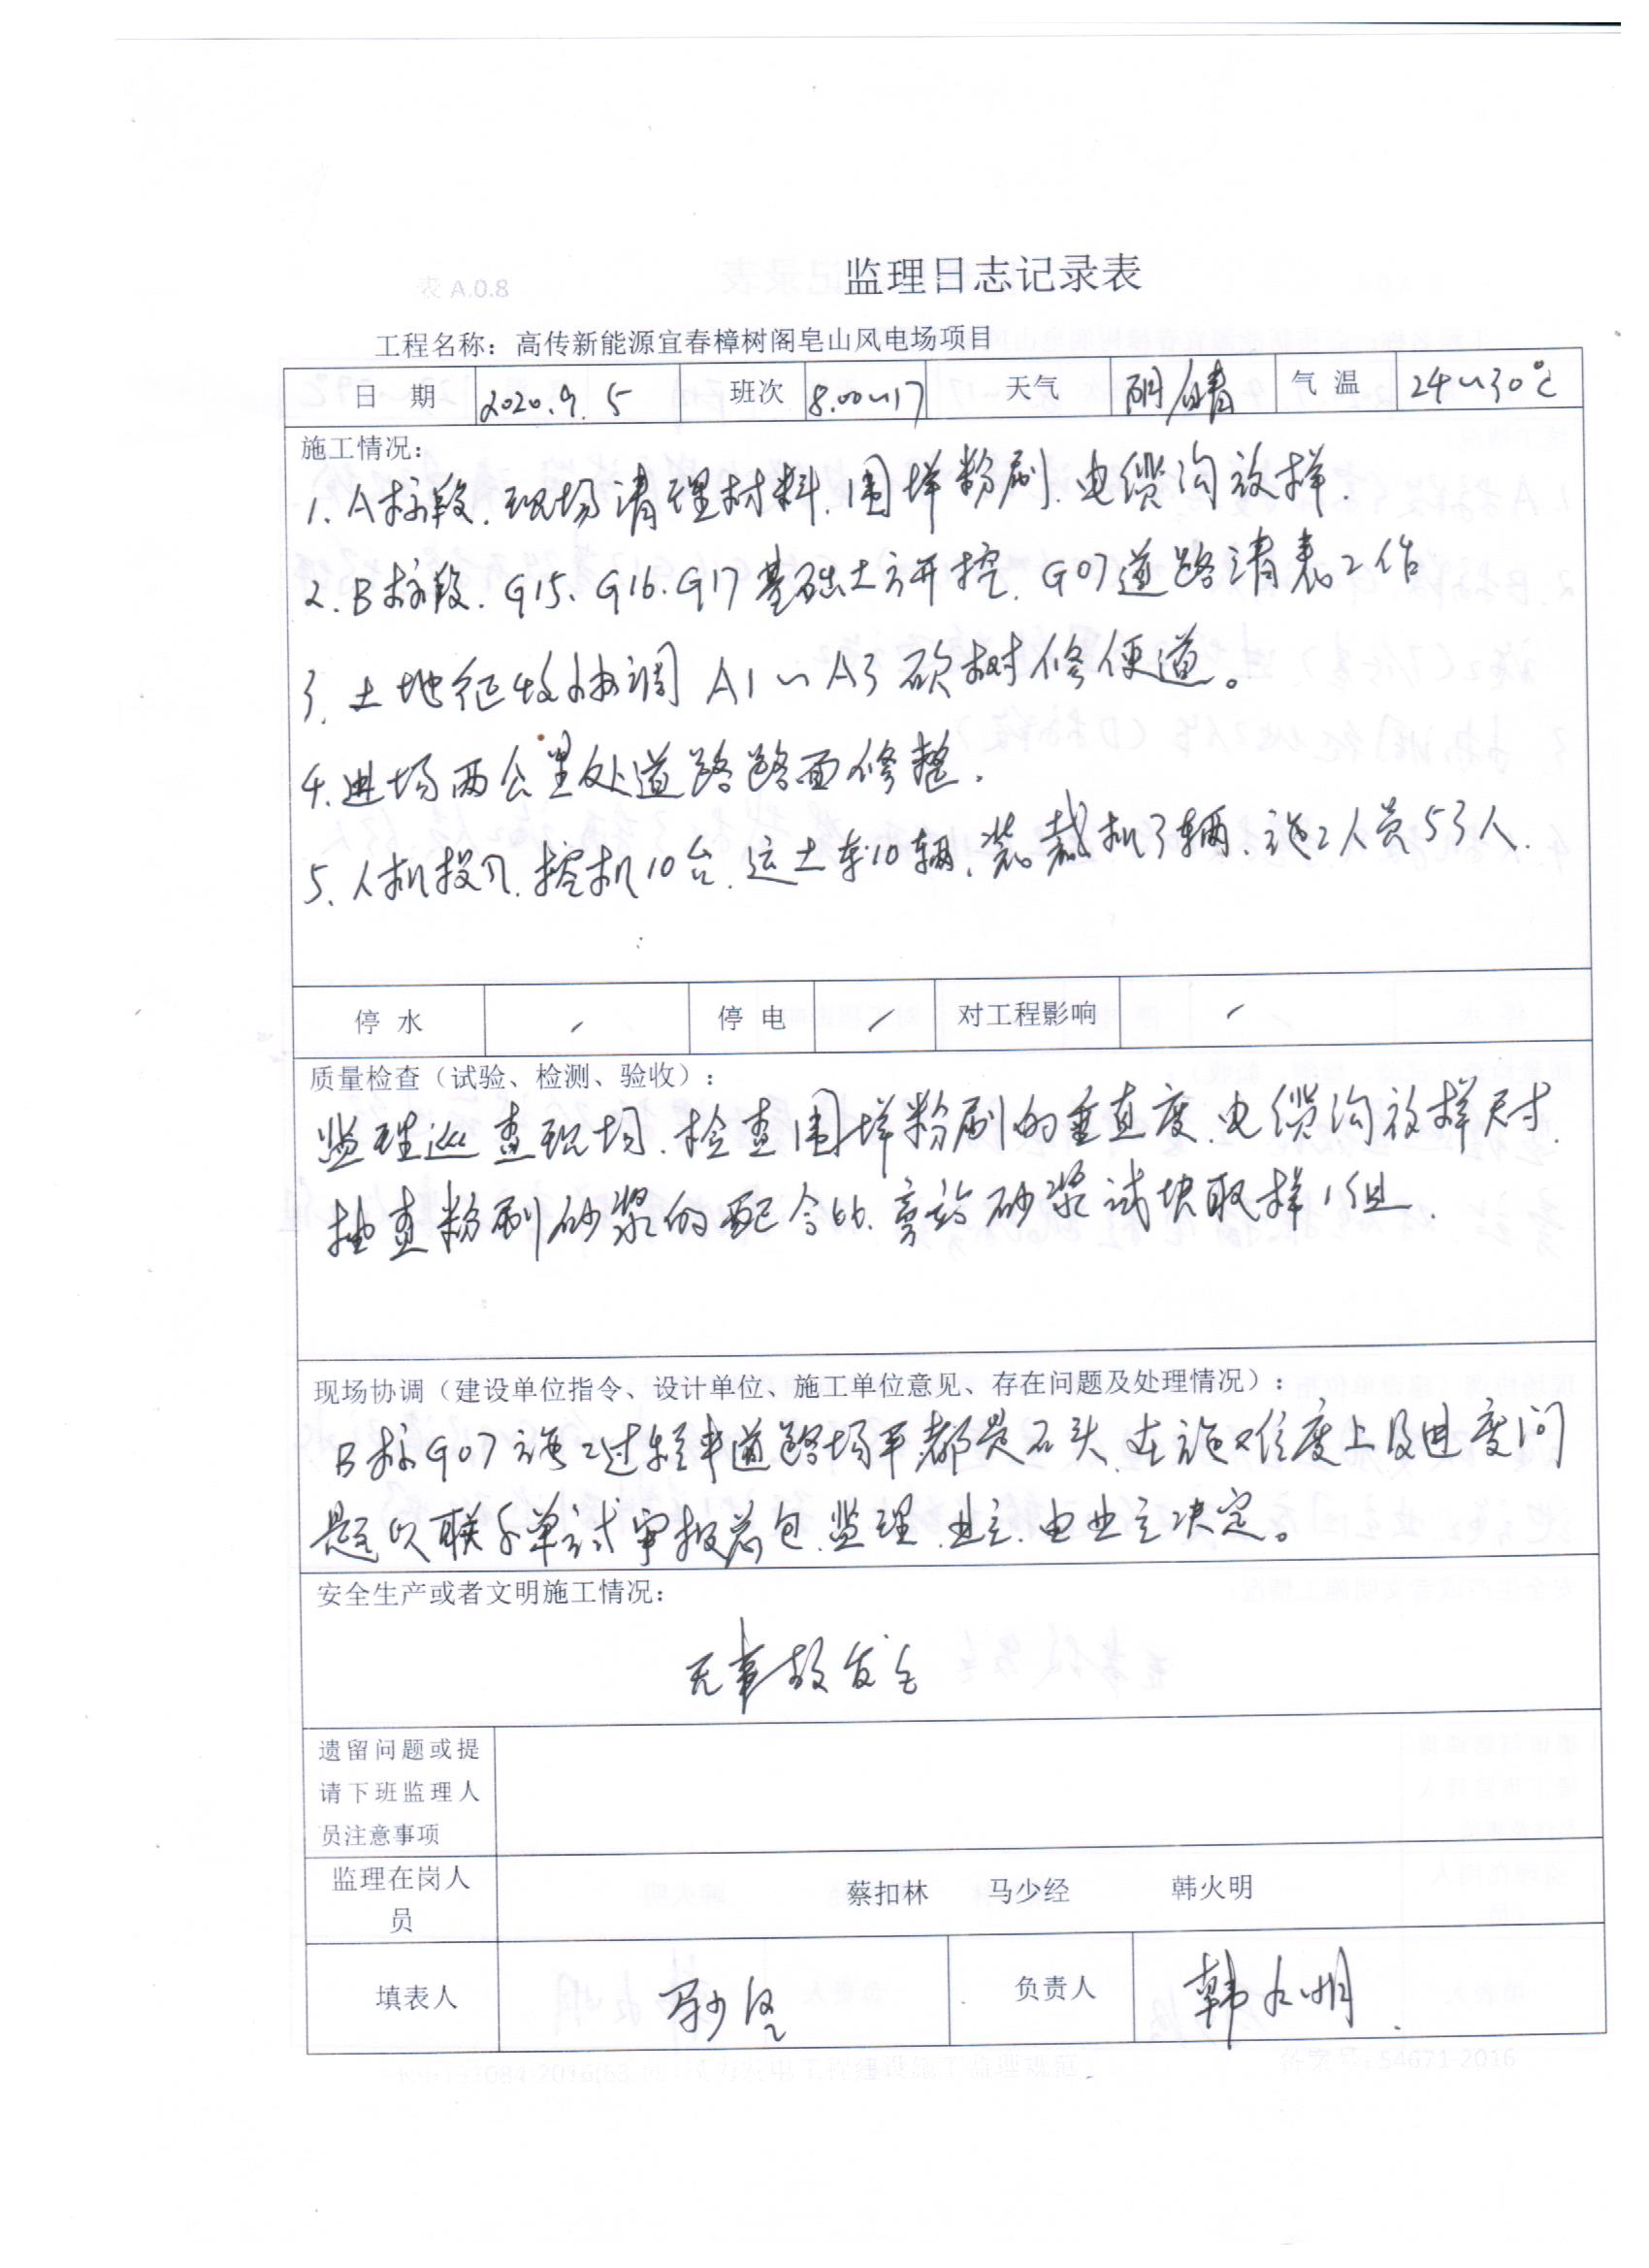 监理日志记录表
表 A.0.8
工程名称：高传新能源宜春樟树阁皂山风电场项目
日 期 2020.9.5 班次 8.00~17 天气 阴/晴 气 温 24~30℃
施工情况：
1. A标段. 现场清理材料. 围墙粉刷. 电缆沟放样.
2. B标段. G15. G16. G17基础土方开挖. G07道路清表工作
3. 土地征收协调 A1~A3 砍树修便道。
4. 进场两公里处道路路面修整.
5、人机投入. 挖机10台. 运土车10辆. 装载机3辆. 施工人员53人.
停 水 / 停 电 / 对工程影响 /
质量检查（试验、检测、验收）：
监理巡查现场. 检查围墙粉刷的垂直度. 电缆沟放样尺寸.
抽查粉刷砂浆的配合比. 砂浆试块取样1组.
现场协调（建设单位指令、设计单位、施工单位意见、存在问题及处理情况）：
B标G07施工过程中道路场平都是石头. 在施工难度上及进度问
题以联系单形式审报总包. 监理. 业主. 由业主决定。
安全生产或者文明施工情况：
无事故发生
遗留问题或提
请下班监理人
员注意事项
监理在岗人
员
蔡扣林 马少经 韩火明
填表人 马少经 负责人 韩火明